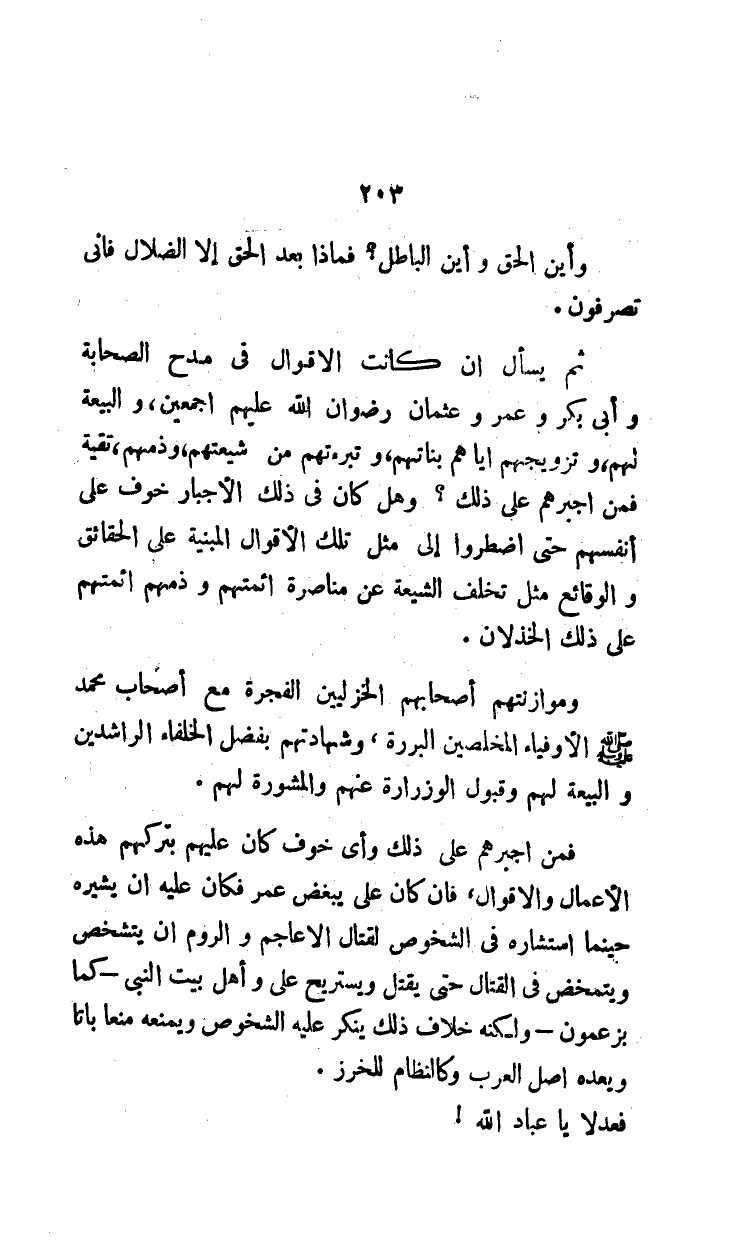 ٢٠٣
وأين الحق و أين الباطل؟ فماذا بعد الحق إلا الضلال فانى
تصرفون .
ثم يسأل ان كانت الاقوال فى مدح الصحابة
و أبى بكر و عمر و عثمان رضوان الله عليهم اجمعين، و البيعة
لهم، و تزويجهم اياهم بناتهم، و تبرءتهم من شيعتهم، وذمهم، تقية
فمن اجبرهم على ذلك ؟ وهل كان فى ذلك الأجبار خوف على
أنفسهم حتى اضطروا إلى مثل تلك الأقوال المبنية على الحقائق
و الوقائع مثل تخلف الشيعة عن مناصرة ائمتهم و ذمهم ائمتهم
على ذلك الخذلان .
وموازنتهم أصحابهم الخزليين الفجرة مع أصحاب محمد
ﷺ الأوفياء المخلصين البررة ، وشهادتهم بفضل الخلفاء الراشدين
و البيعة لهم وقبول الوزرارة عنهم والمشورة لهم .
فمن اجبرهم على ذلك وأى خوف كان عليهم بتركهم هذه
الأعمال والاقوال، فان كان على يبغض عمر فكان عليه ان يشيره
حينما استشاره فى الشخوص لقتال الاعاجم و الروم ان يتشخص
ويتمخض فى القتال حتى يقتل ويستريح على و أهل بيت النبى —كما
يزعمون — ولكنه خلاف ذلك ينكر عليه الشخوص ويمنعه منعا باتا
ويعده اصل العرب وكالنظام للخرز .
فعدلا يا عباد الله !